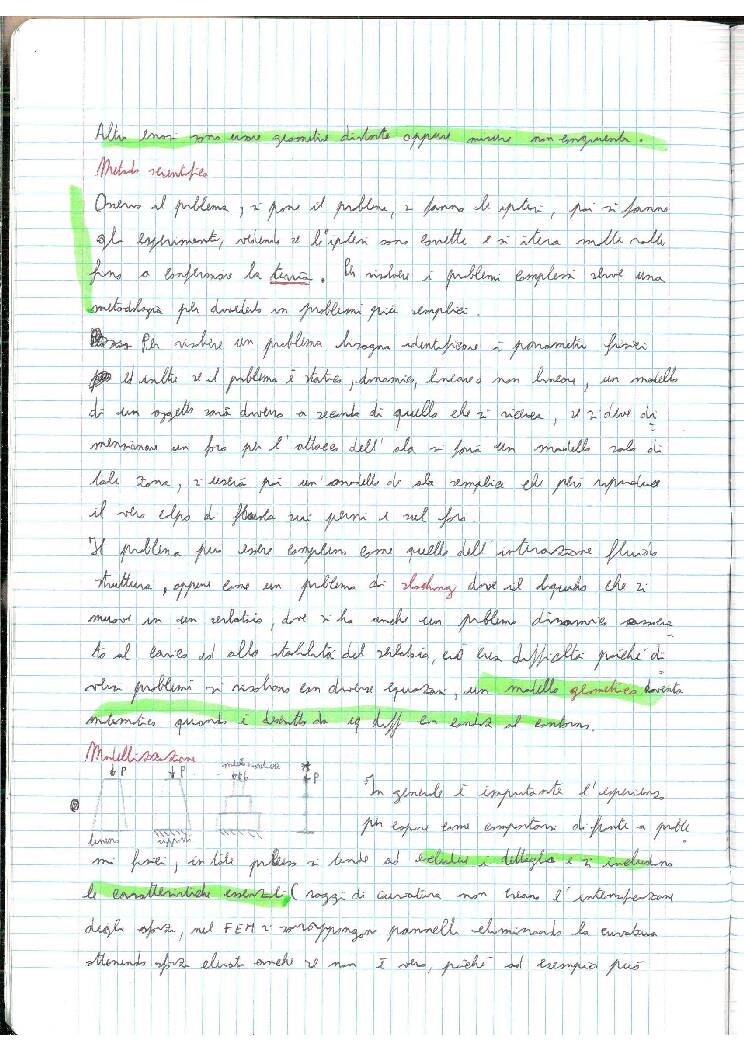 Altri errori sono usare geometrie distorte oppure misure non congruenti.
Metodo scientifico
Osservo il problema, si pone il problema, si fanno le ipotesi, poi si fanno
gli esperimenti, vedendo se le ipotesi sono corrette e si itera molte volte
fino a confermare la teoria. Per risolvere i problemi complessi serve una
metodologia per dividerlo in problemi più semplici.
Per risolvere un problema bisogna identificare i parametri fisici
ed inoltre se il problema è statico, dinamico, lineare o non lineare, un modello
di un oggetto sarà diverso a seconda di quello che si ricerca, se si deve di
mensionare un foro per l'attacco dell'ala si farà un modello solo di
tale zona, si userà poi un modello di ala semplice che però riproduce
il vero sui perni e sul foro.
Il problema può essere complesso come quello dell'interazione fluido
struttura, oppure come un problema di sloshing dove il liquido che si
muove in un serbatoio, dove si ha anche un problema dinamico associa
to al carico ed alla stabilità del serbatoio, ciò crea difficoltà poiché di
versi problemi si risolvono con diverse equazioni, un modello geometrico diventa
matematico quando è descritto da eq diff con condiz al contorno.
Modellizzazione
P P P
In generale è importante l'esperienza
per capire come comportarsi di fronte a proble
mi fisici, in tale processo si tende ad escludere i dettagli e si includono
le caratteristiche essenziali (raggi di curvatura non creano l'intensificazione
degli sforzi, nel FEM si sovrappongono pannelli eliminando la curvatura
ottenendo sforzi elevati anche se non è vero, poiché ad esempio può